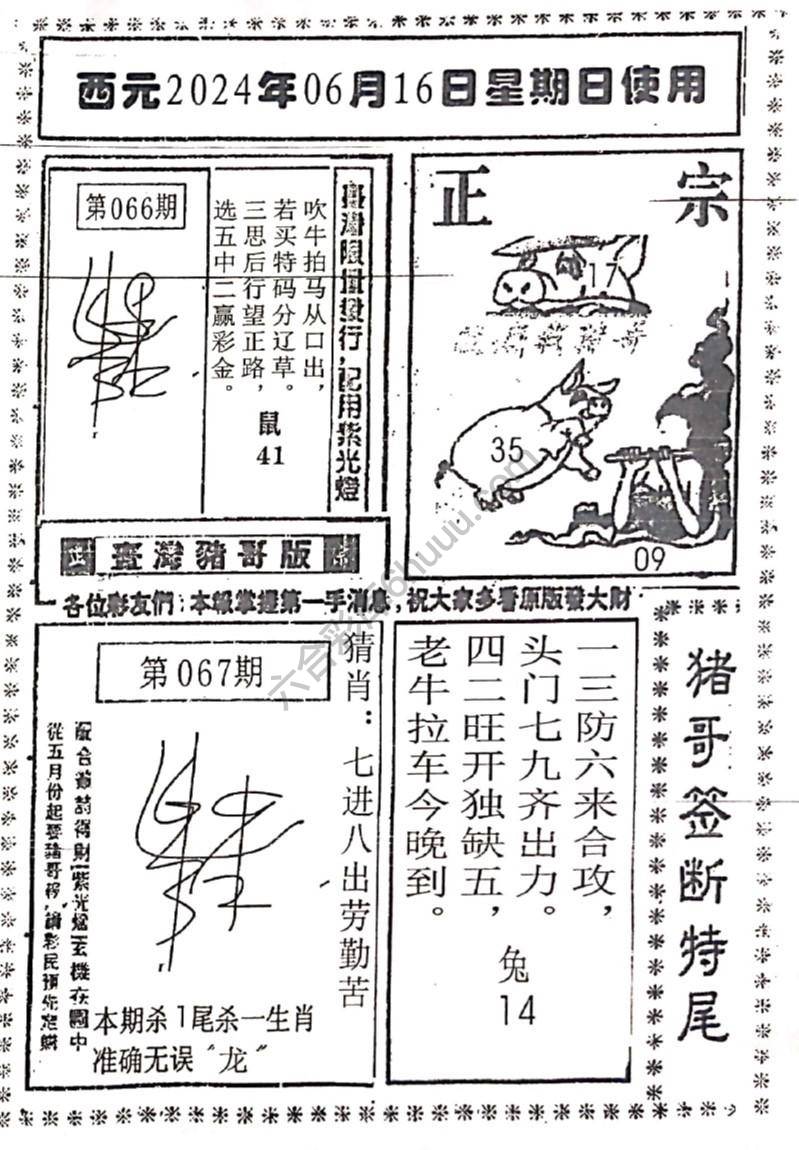 西元2024年06月16日星期日使用
第066期
臺灣限量發行，配用紫光燈
吹牛拍马从口出，
若买特码分辽草。
三思后行望正路，
选五中二赢彩金。
鼠
41
正宗
17
35
09
正 臺灣豬哥版 宗
各位彩友們：本報掌握第一手消息，祝大家多看原版發大財
第067期
猜肖：七进八出劳勤苦
從五月份起要豬哥
紫光燈
玄機在圖中
本期杀1尾杀一生肖
准确无误“龙”
一三防六来合攻，
头门七九齐出力。
四二旺开独缺五，
老牛拉车今晚到。
兔
14
猪哥签断特尾
六合彩
huuu.com